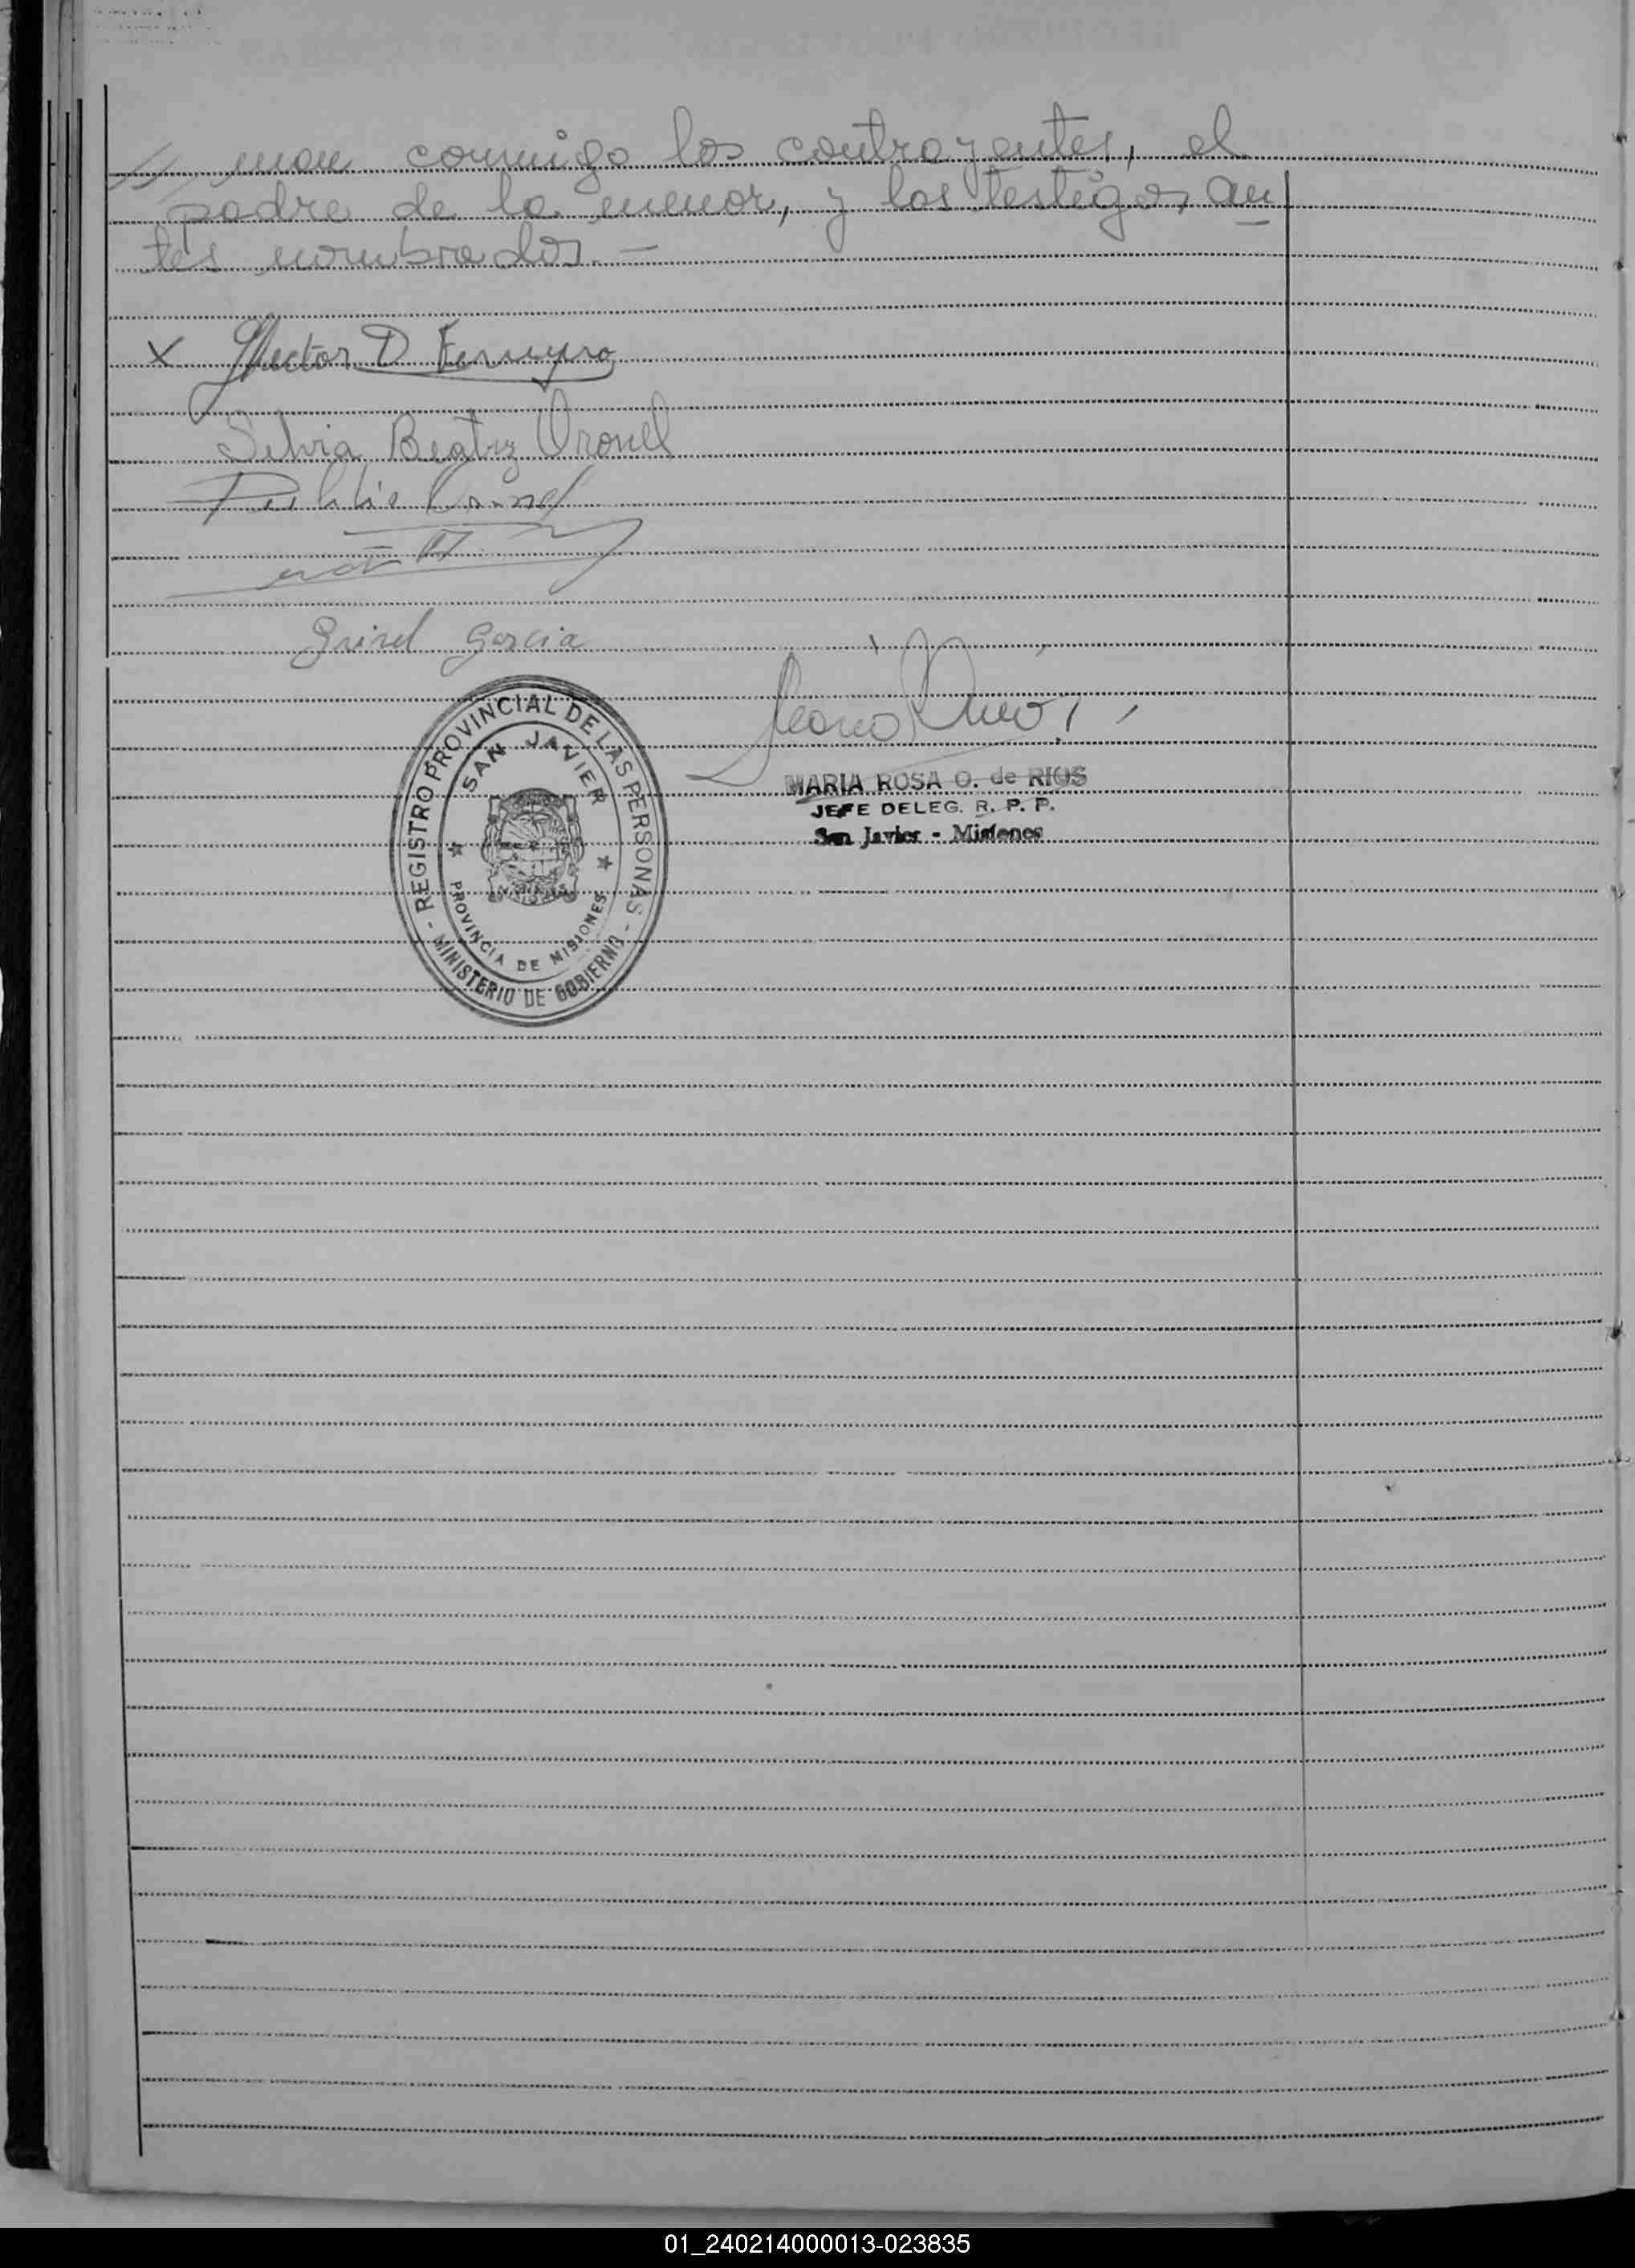 // man conmigo los contrayentes, el
padre de la menor, y los testigos an
tes nombrados. —
x Hector D Ferreyra
Silvia Beatriz Oronel
Publio Oronel
Grisel Garcia
REGISTRO PROVINCIAL DE LAS PERSONAS
SAN JAVIER
PROVINCIA DE MISIONES
- MINISTERIO DE GOBIERNO -
MARIA ROSA O. de RIOS
JEFE DELEG. R. P. P.
San Javier - Misiones
01_240214000013-023835